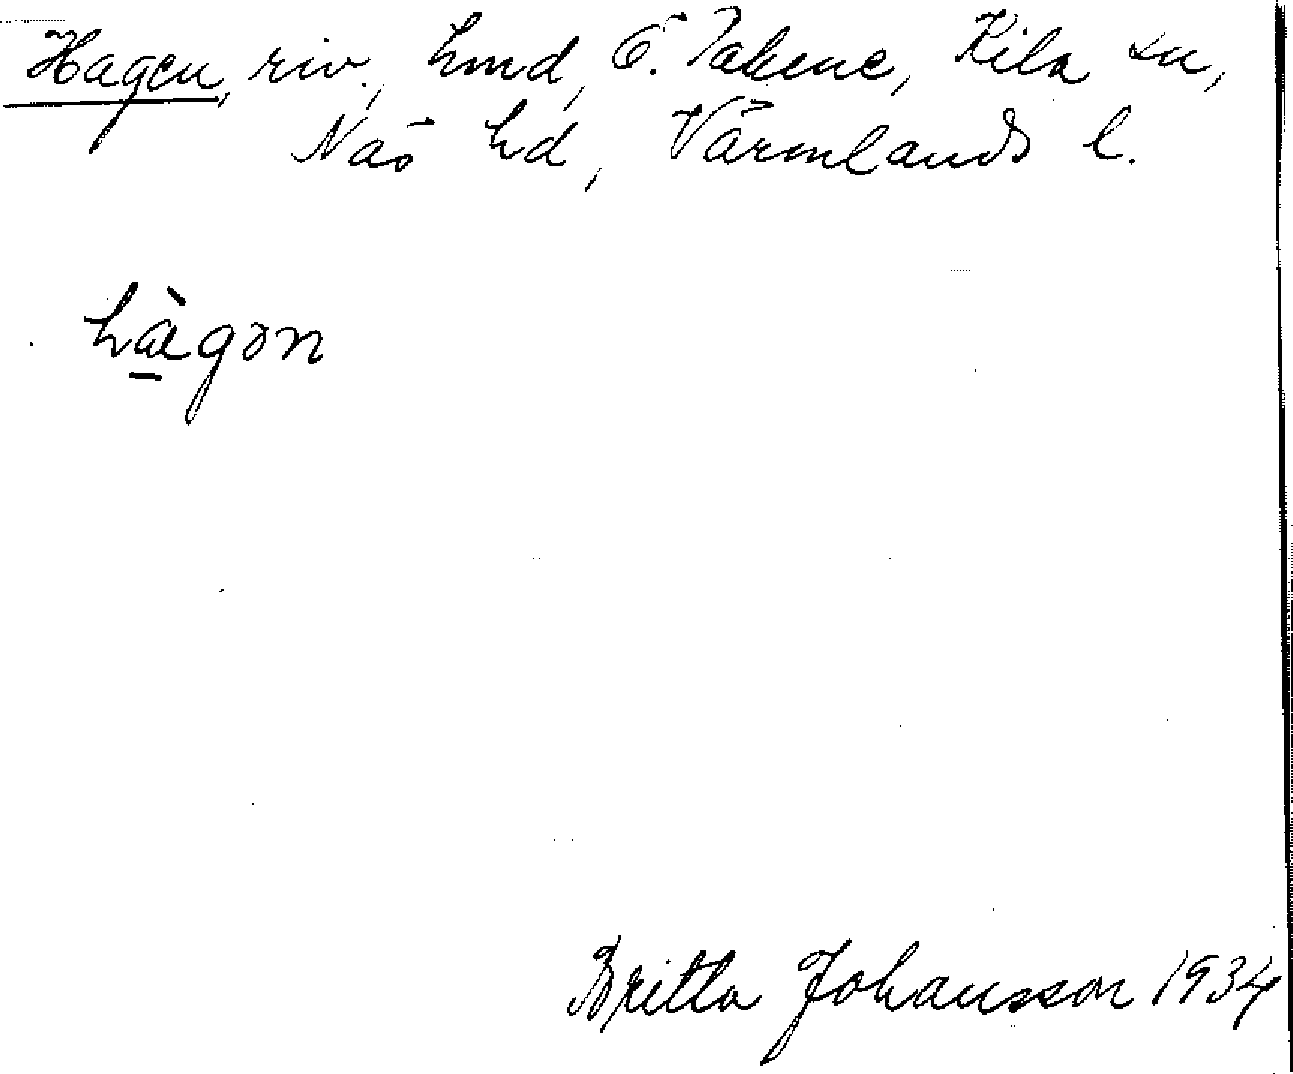 Hagen, riv., hmd, Ö. Takene, Kila sn,
Näs hd, Värmlands l.
hàgon
Britta Johansson 1934